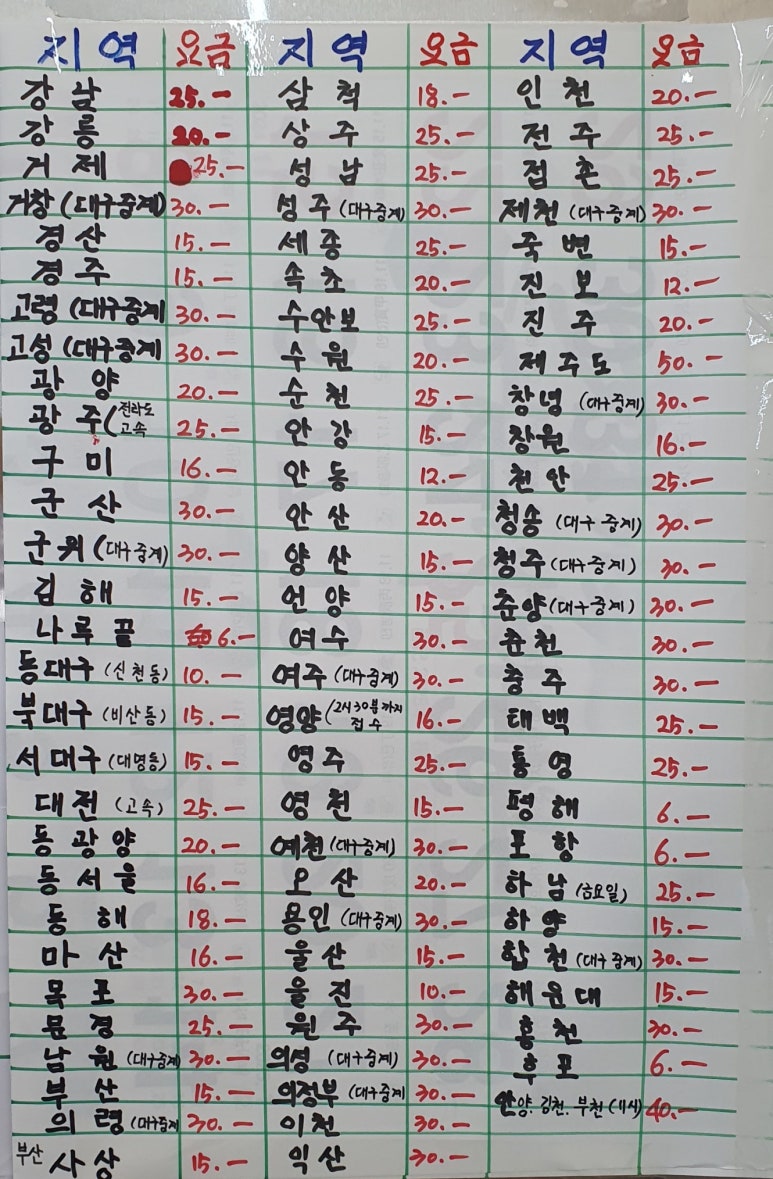 지역 요금 지역 요금 지역 요금
강남 25.- 삼척 18.- 인천 20.-
강릉 20.- 상주 25.- 전주 25.-
거제 25.- 성남 25.- 점촌 25.-
거창 (대구중계) 30.- 성주 (대구중계) 30.- 제천 (대구중계) 30.-
경산 15.- 세종 25.- 죽변 15.-
경주 15.- 속초 20.- 진보 12.-
고령 (대구중계 30.- 수안보 25.- 진주 20.-
고성 (대구중계 30.- 수원 20.- 제주도 50.-
광양 20.- 순천 25.- 창녕 (대구중계) 30.-
광주 (전라도 고속 25.- 안강 15.- 창원 16.-
구미 16.- 안동 12.- 천안 25.-
군산 30.- 안산 20.- 청송 (대구중계) 30.-
군위 (대구중계) 30.- 양산 15.- 청주 (대구중계) 30.-
김해 15.- 언양 15.- 춘양 (대구중계) 30.-
나루끝 6.- 여수 30.- 춘천 30.-
동대구 (신천동) 10.- 여주 (대구중계) 30.- 충주 30.-
북대구 (비산동) 15.- 영양 (2시30분까지 접수 16.- 태백 25.-
서대구 (대명동) 15.- 영주 25.- 통영 25.-
대전 (고속) 25.- 영천 15.- 평해 6.-
동광양 20.- 예천 (대구중계) 30.- 포항 6.-
동서울 16.- 오산 20.- 하남 (금요일) 25.-
동해 18.- 용인 (대구중계) 30.- 하양 15.-
마산 16.- 울산 15.- 합천 (대구중계) 30.-
목포 30.- 울진 10.- 해운대 15.-
문경 25.- 원주 30.- 홍천 30.-
남원 (대구중계) 30.- 의성 (대구중계) 30.- 후포 6.-
부산 15.- 의정부 (대구중계 30.- 안양. 김천. 부천 40.-
의령 (대구중계 30.- 이천 30.-
부산 사상 15.- 익산 30.-